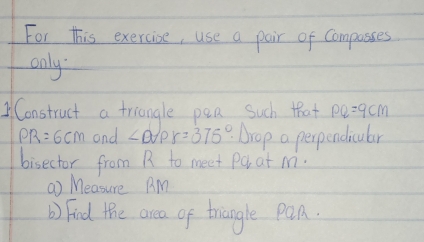 For this exercise, use a pair of Compasses
only.
1. Construct a triangle PQR Such that PQ=9cm
PR=6cm and 375°. Drop a perpendicular
bisector from R to meet PQ at M.
a) Measure RM
b) Find the area of triangle PQR.